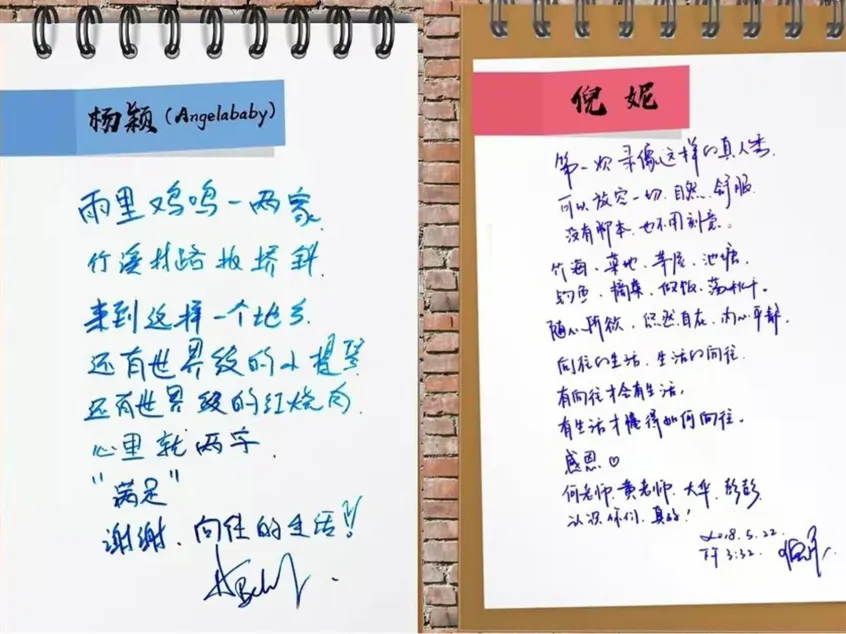 杨颖(Angelababy)
雨里鸡鸣一两家
竹溪村路板桥斜
来到这样一个地方
还有世界级的小提琴
还有世界级的红烧肉
心里就两字
"满足"
谢谢、向往的生活!!
倪妮
第一次录像这样的真人秀
可以放空一切、自然、舒服
没有脚本、也不用刻意。
竹海、菜地、茅屋、池塘、
钓鱼、摘菜、做饭、荡秋千。
随心所欲、悠然自在、内心平静。
向往的生活、生活的向往
有向往才会有生活,
有生活才懂得如何向往。
感恩♡
何老师、黄老师、大华、彭彭
认识你们、真好!
2018.5.22
下午3:32.
倪妮